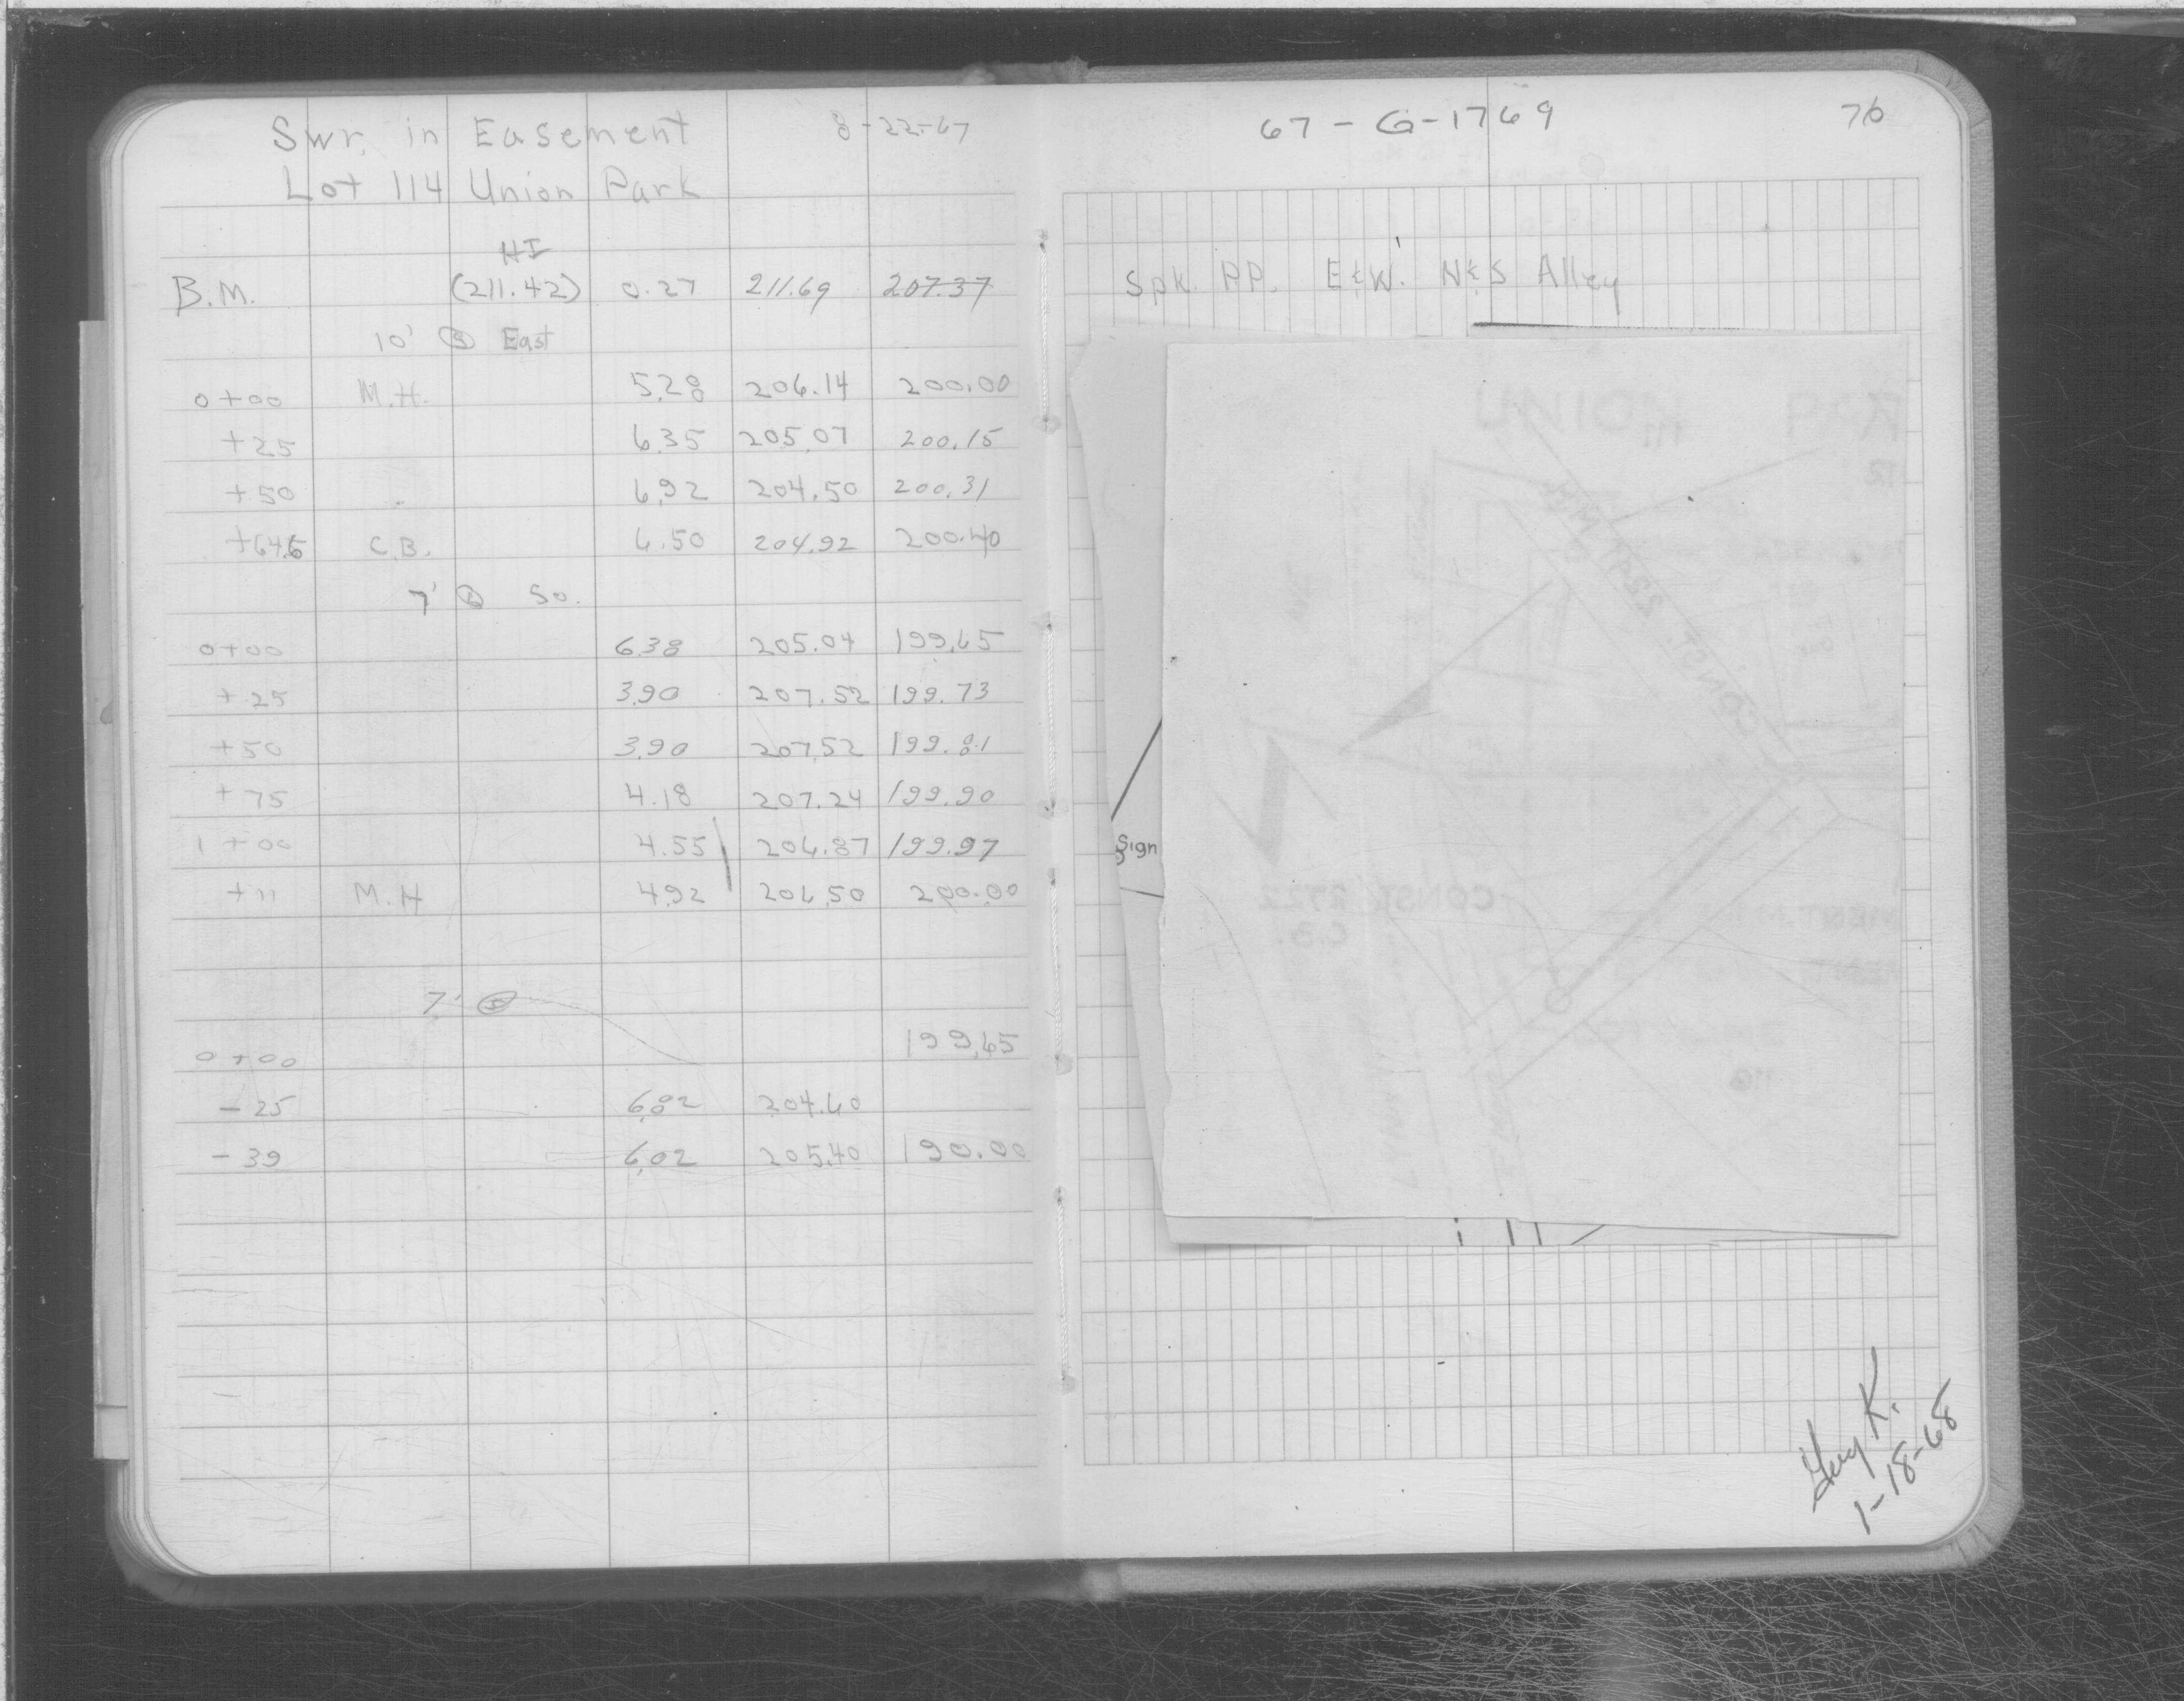 Swr. in Easement 8-22-67
Lot 114 Union Park
HI
B.M. (211.42) 0.27 211.69 207.37
10' Ⓢ East
0+00 M.H. 5.28 206.14 200.00
+25 6.35 205.07 200.15
+50 6.92 204.50 200.31
+64.5 C.B. 6.50 204.92 200.40
7' Ⓢ So.
0+00 6.38 205.04 199.65
+25 3.90 207.52 199.73
+50 3.90 207.52 199.81
+75 4.18 207.24 199.90
1+00 4.55 206.87 199.97
+11 M.H 4.92 206.50 200.00
7' Ⓢ
0+00 199.65
-25 6.82 204.60
-39 6.02 205.40 190.00
67-G-1769 76
Spk. P.P. E&W. N&S Alley
Sign
UNION
CONST. 2722
C.B.
K.
1-18-68